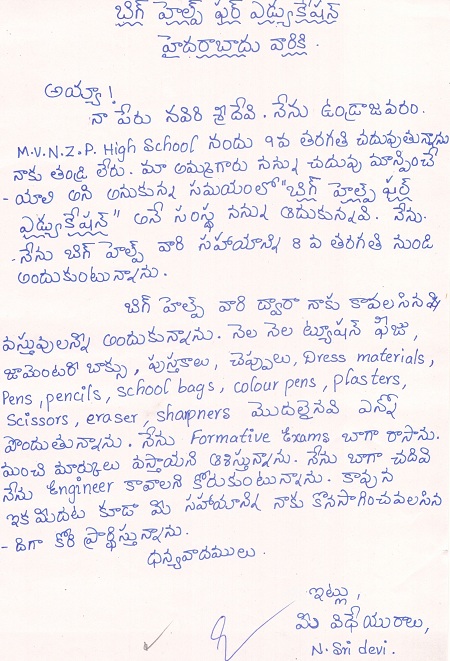 బిగ్ హెల్ప్ ఫర్ ఎడ్యుకేషన్
హైదరాబాదు వారికి.
అయ్యా!
నా పేరు నవిరి శ్రీదేవి. నేను ఉండ్రాజవరం.
M.V.N.Z.P. High School నందు 9వ తరగతి చదువుతున్నాను
నాకు తండ్రి లేరు. మా అమ్మగారు నన్ను చదువు మాన్పించే
- యాలి అని అనుకున్న సమయంలో "బిగ్ హెల్ప్ ఫర్
ఎడ్యుకేషన్" అనే సంస్థ నన్ను ఆదుకున్నది. నేను.
- నేను బిగ్ హెల్ప్ వారి సహాయాన్ని 8 వ తరగతి నుండి
అందుకుంటున్నాను.
బిగ్ హెల్ప్ వారి ద్వారా నాకు కావలసిన
వస్తువులన్ని అందుకున్నాను. నెల నెల ట్యూషన్ ఫీజు,
జామెంటరీ బాక్సు, పుస్తకాలు, చెప్పులు, Dress materials,
Pens, pencils, school bags, colour pens, plasters,
scissors, eraser, sharpners మొదలైనవి ఎన్నో
పొందుతున్నాను. నేను Formative Exams బాగా రాసాను.
మంచి మార్కులు వస్తాయని ఆశిస్తున్నాను. నేను బాగా చదివి
నేను Engineer కావాలని కోరుకుంటున్నాను. కావున
ఇక మీదట కూడా మీ సహాయాన్ని నాకు కొనసాగించవలసిన
- దిగా కోరి ప్రార్థిస్తున్నాను.
ధన్యవాదములు.
ఇట్లు,
మీ విధేయురాలు,
N. Sri devi.